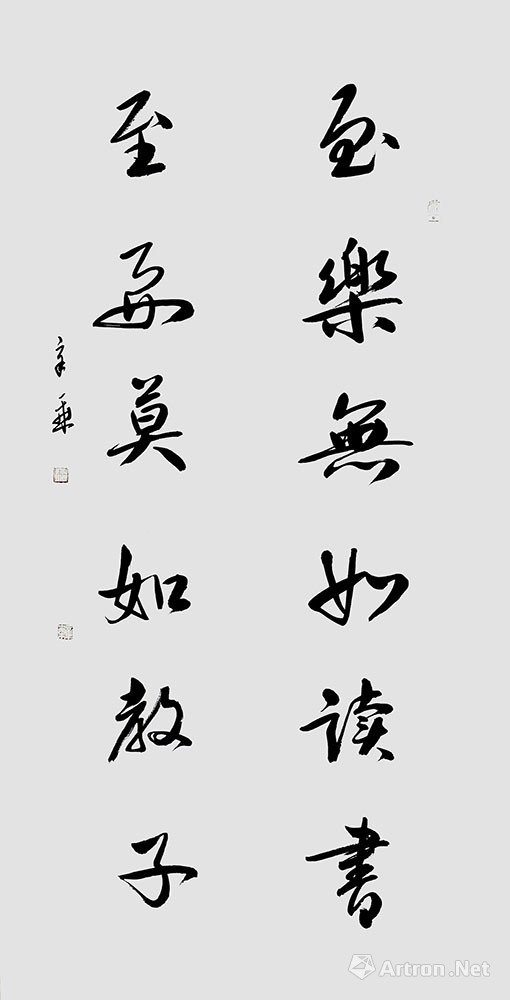 至樂無如读書
至要莫如教子
Artron.Net